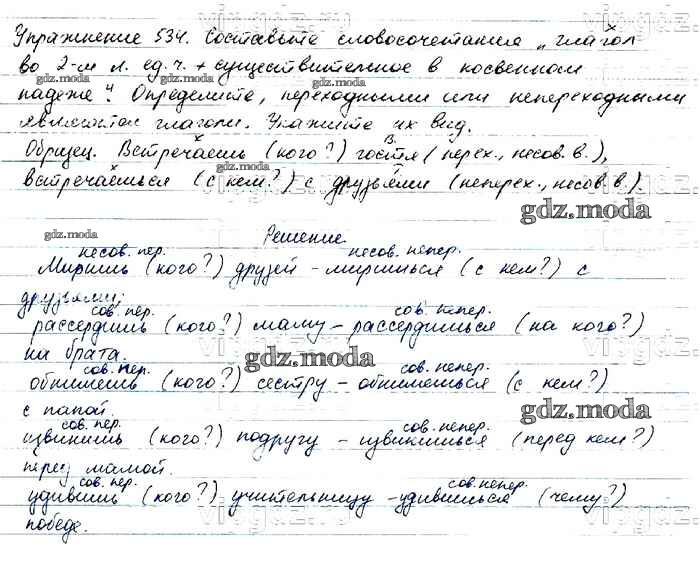 Упражнение 534. Составьте словосочетания „глагол
во 2-м л. ед. ч. + существительное в косвенном
gdz.moda gdz.moda gdz.moda
падеже". Определите, переходными или непереходными
являются глаголы. Укажите их вид.
Образец. Встречаешь (кого?) гостя (перех., несов. в.),
встречаешься (с кем?) с друзьями (неперех., несов. в.).
gdz.moda
gdz.moda Решение.
несов. пер. несов. непер.
Миришь (кого?) друзей - миришься (с кем?) с
друзьями;
сов. пер. сов. непер.
рассердишь (кого?) маму - рассердишься (на кого?)
на брата. gdz.moda
сов. пер. сов. непер.
обнимешь (кого?) сестру - обнимешься (с кем?)
с папой. gdz.moda
сов. пер. сов. непер.
извинишь (кого?) подругу - извинишься (перед кем?)
перед мамой.
сов. пер. сов. непер.
удивишь (кого?) учительницу - удивишься (чему?)
победе.